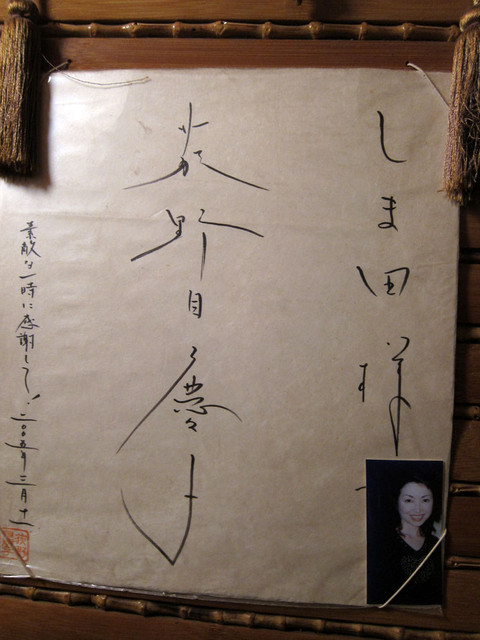 しま田様
荻野目慶子
素敵な一時に感謝して! 二〇〇五年二月十一